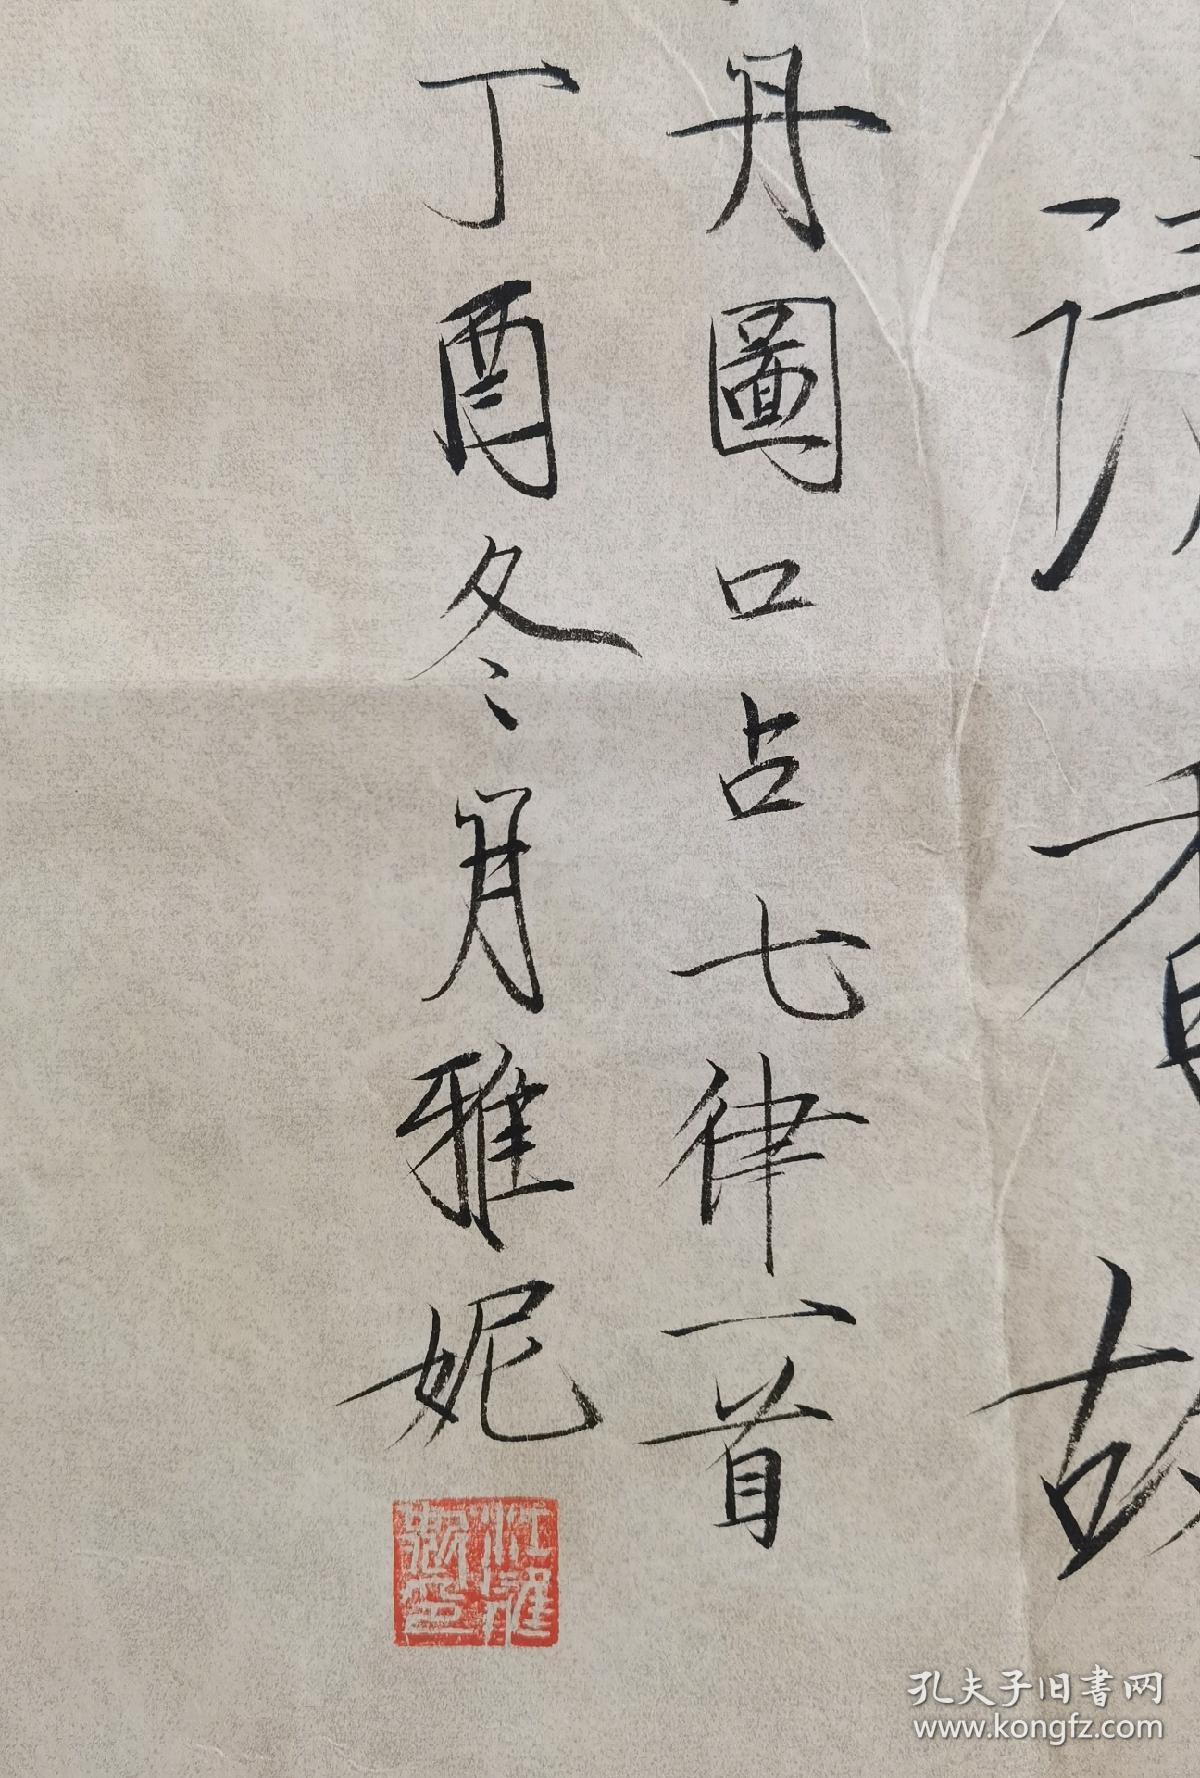 清香故
丹圖口占七律一首
丁酉冬月雅妮
孔夫子旧書网
www.kongfz.com